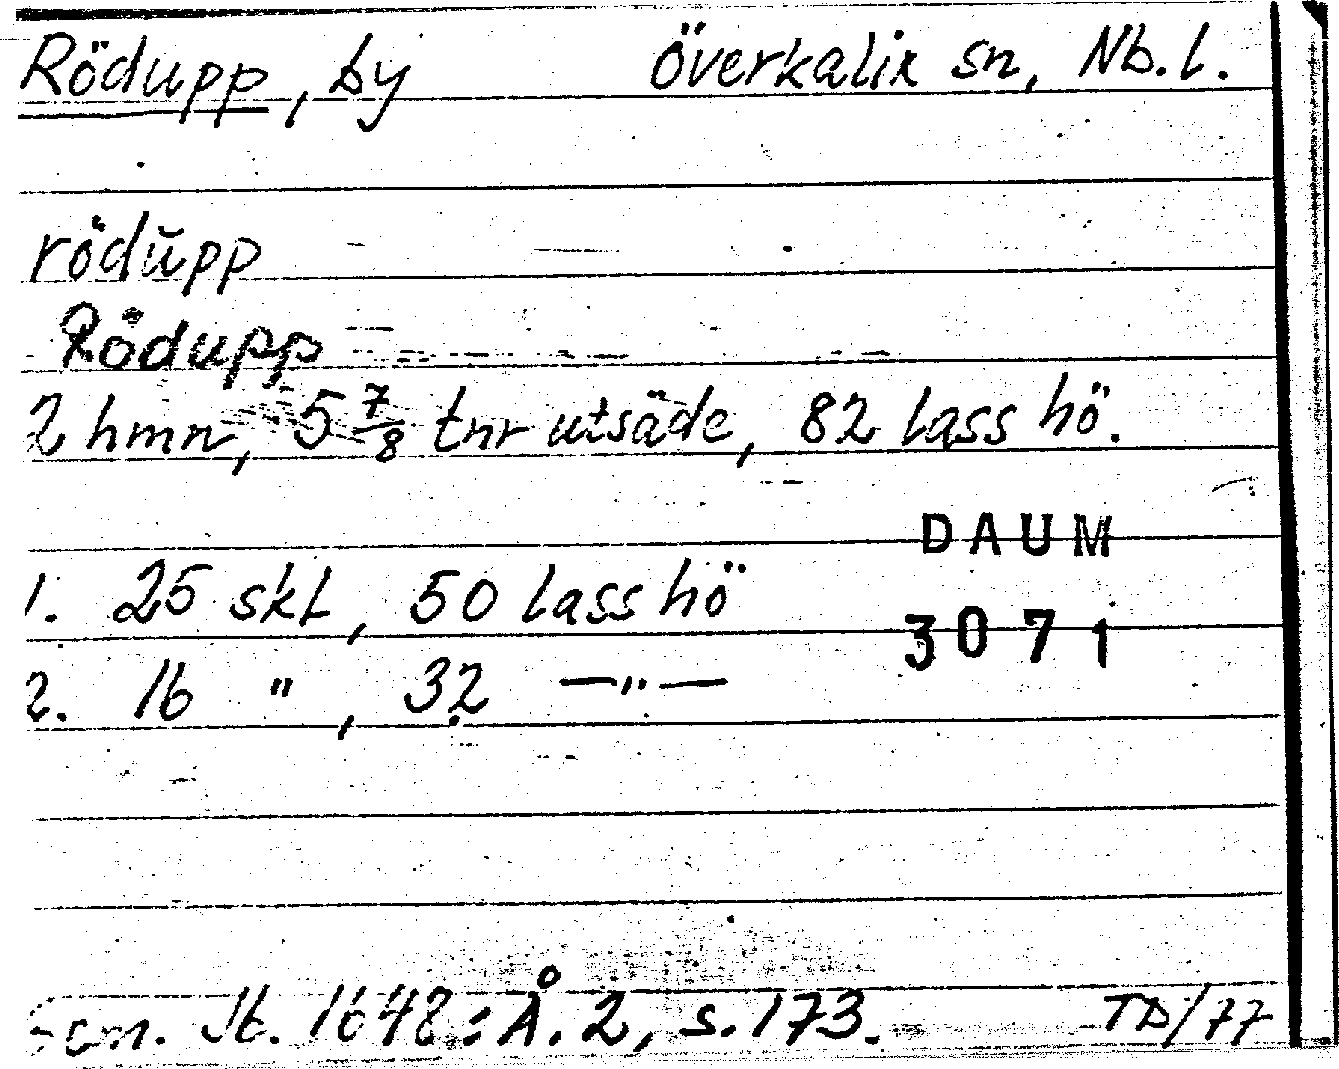 Rödupp, by Överkalix sn, Nb. l.
rödŭpp
Rödupp
2 hmn, 5 7/8 tnr utsäde, 82 lass hö.
DAUM
1. 25 skL, 50 lass hö
3071
2. 16 " , 32 —"—
Jb. 1648: Å. 2, s. 173. TD/77